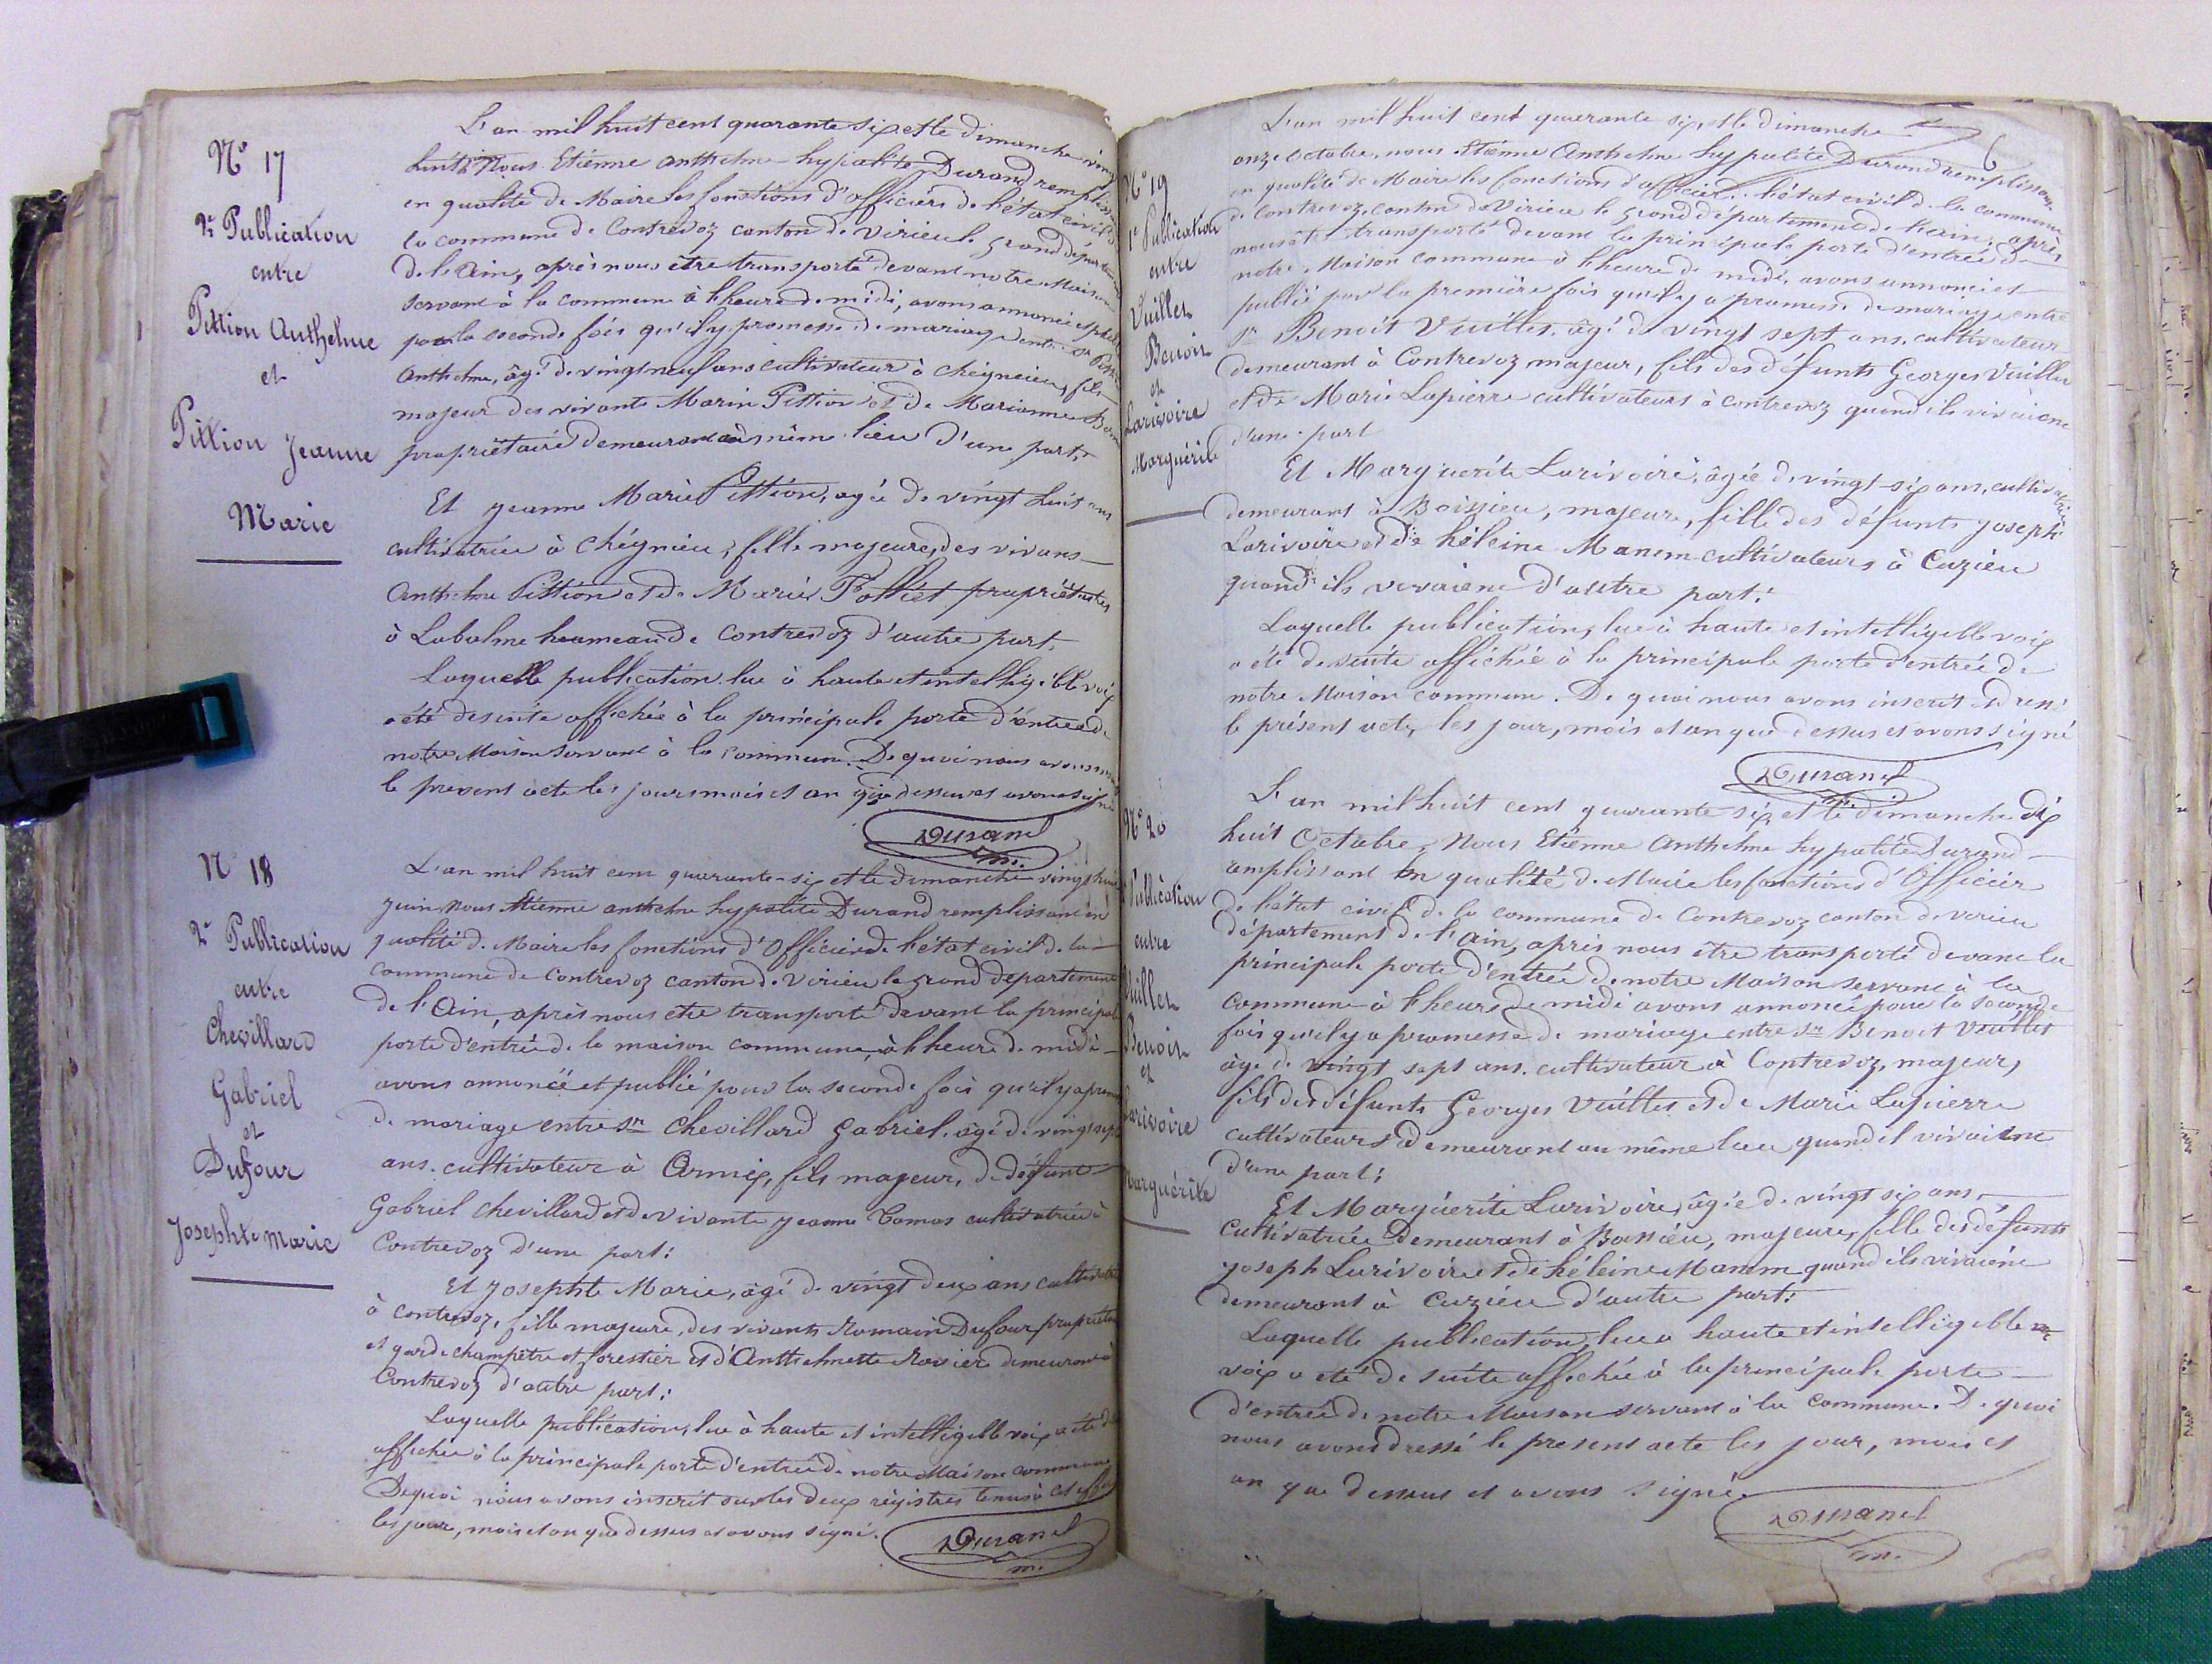 N° 17
2e Publication
entre
Pittion Anthelme
et
Pittion Jeanne
Marie
L'an mil huit cent quarante six et le dimanche vingt
huit Nous Etienne anthelme hypolite Durand remplissant
en qualité de Maire les fonctions d'officiers de l'état civil de
la commune de Contrevoz canton de Virieu le grand département
de l'Ain, après nous être transporté devant notre Maison
servant à la commune à l'heure de midi, avons annoncé et publié
pour la seconde fois qu'il y promesse de mariage entre sr Pittion
Anthelme, âgé de vingt neuf ans cultivateur à Cheignieu, fils
majeur des vivants Marin Pittion et de Marianne
propriétaire demeurant au même lieu d'une part.
Et Jeanne Marie Pittion, agée de vingt huit ans
cultivatrice à Chégnieu, fille majeure, des vivans
Anthelme Pittion et de Marie Folliet propriétaires
à Labalme heameau de Contrevoz d'autre part.
Laquelle publication lue à haute et intelligible voix
a été de suite affichée à la principale porte d'entrée de
notre Maison servant à la commune. De quoi nous avons
le present acte les jours mois et an que dessus et avons signé
Durand
m.
N° 18
2e Publication
entre
Chevillard
Gabriel
et
Dufour
Josephte Marie
L'an mil huit cent quarante-six et le dimanche vingt huit
juin nous Etienne anthelme hypolite Durand remplissant en
qualité de Maire les fonctions d'Officier de l'état civil de la
commune de Contrevoz canton de Virieu le grand département
de l'Ain, après nous etre transporté devant la principale
porte d'entrée de la maison commune, à l'heure de midi
avons annoncé et publié pour la seconde fois qu'il y a promesse
de mariage entre sr Chevillard Gabriel, âgé de vingt sept
ans. cultivateur à Armix, fils majeur, de défunt
Gabriel Chevillard et de vivante Jeanne Comas cultivatrice à
Contrevoz d'une part:
Et Josephte Marie, âgé de vingt deux ans cultivatrice
à Contevoz, fille majeure, des vivants Romain Dufour propriétaire
et garde champêtre et forestier et d'Anthelmette Rovier demeurant à
Contrevoz d'autre part:
Laquelle publication, lue à haute et intelligible voix a été de
affichée à la principale porte d'entrée de notre Maison commune
De quoi nous avons inscrit sur les deux régistres tenus à cet effet
les jour, mois et an que dessus et avons signé.
Durand
m.
6
N° 19
1e Publication
entre
Vuillet
Benoit
et
Larivoire
Marguérite
L'an mil huit cent quarante six, et le dimanche
onze Octobre, nous Etienne Anthelme hypolite Durand remplissant
en qualité de Maire les fonctions d'officier de l'état civil de la commune
de Contrevoz, canton de Virieu le grand département de l'ain, après
nous être transporté devant la principale porte d'entrée de
notre Maison commune à l'heure de midi, avons annoncé et
publié pour la première fois qu'il y a promesse de mariage entre
sr Benoit Vuillet. âgé de vingt sept ans, cultivateur
demeurant à Contrevoz majeur, fils des défunts Georges Vuillet
et de Marie Lapierre cultivateurs à contrevoz quand ils vivaient
d'une part
Et Marguerite Larivoire, âgée de vingt-six ans, cultivatrice
demeurant à Boissieu, majeure, fille des défunts Joseph
Larivoire et de héleine Manem cultivateurs à Cuzieu
quand ils vivaient d'autre part:
Laquelle publication, lue à haute et intelligible voix
a été de suite affichée à la principale porte d'entrée de
notre Maison commune. De quoi nous avons inscrit et dressé
le présent acte, les jour, mois et an que dessus et avons signé
Durand
N° 20
Publication
entre
Vuillet
Benoit
et
Larivoire
Marguérite
L'an mil huit cent quarante-six, et le dimanche dix
huit Octobre, Nous Etienne Anthelme hypolite Durand
remplissant en qualité de Maire les fonctions d'Officier
de l'état civil de la commune de Contrevoz canton de virieu
département de l'Ain, après nous être transporté devant la
principale porte d'entrée de notre Maison servant à la
commune à l'heure de midi avons annoncé pour la seconde
fois qu'il y a promesse de mariage entre sr Benoit Vuillet
âgé de vingt sept ans. cultivateur à Contrevoz, majeur,
fils des défunts Georges Vuillet et de Marie Lapierre
cultivateurs demeurant au même lieu quand il vivaient
d'une part:
Et Marguérite Larivoire, âgée de vingt six ans,
cultivatrice demeurant à Boissieu, majeure, fille des défunts
Joseph Larivoire et de héleine Manem quand ils vivaient
demeurant à Cuzieu d'autre part:
Laquelle publication, lue à haute et intelligible
voix a été de suite affichée à la principale porte
d'entrée de notre Maison servant à la commune. De quoi
nous avons dressé le present acte les jour, mois et
an que dessus et avons signé.
Durand
m.